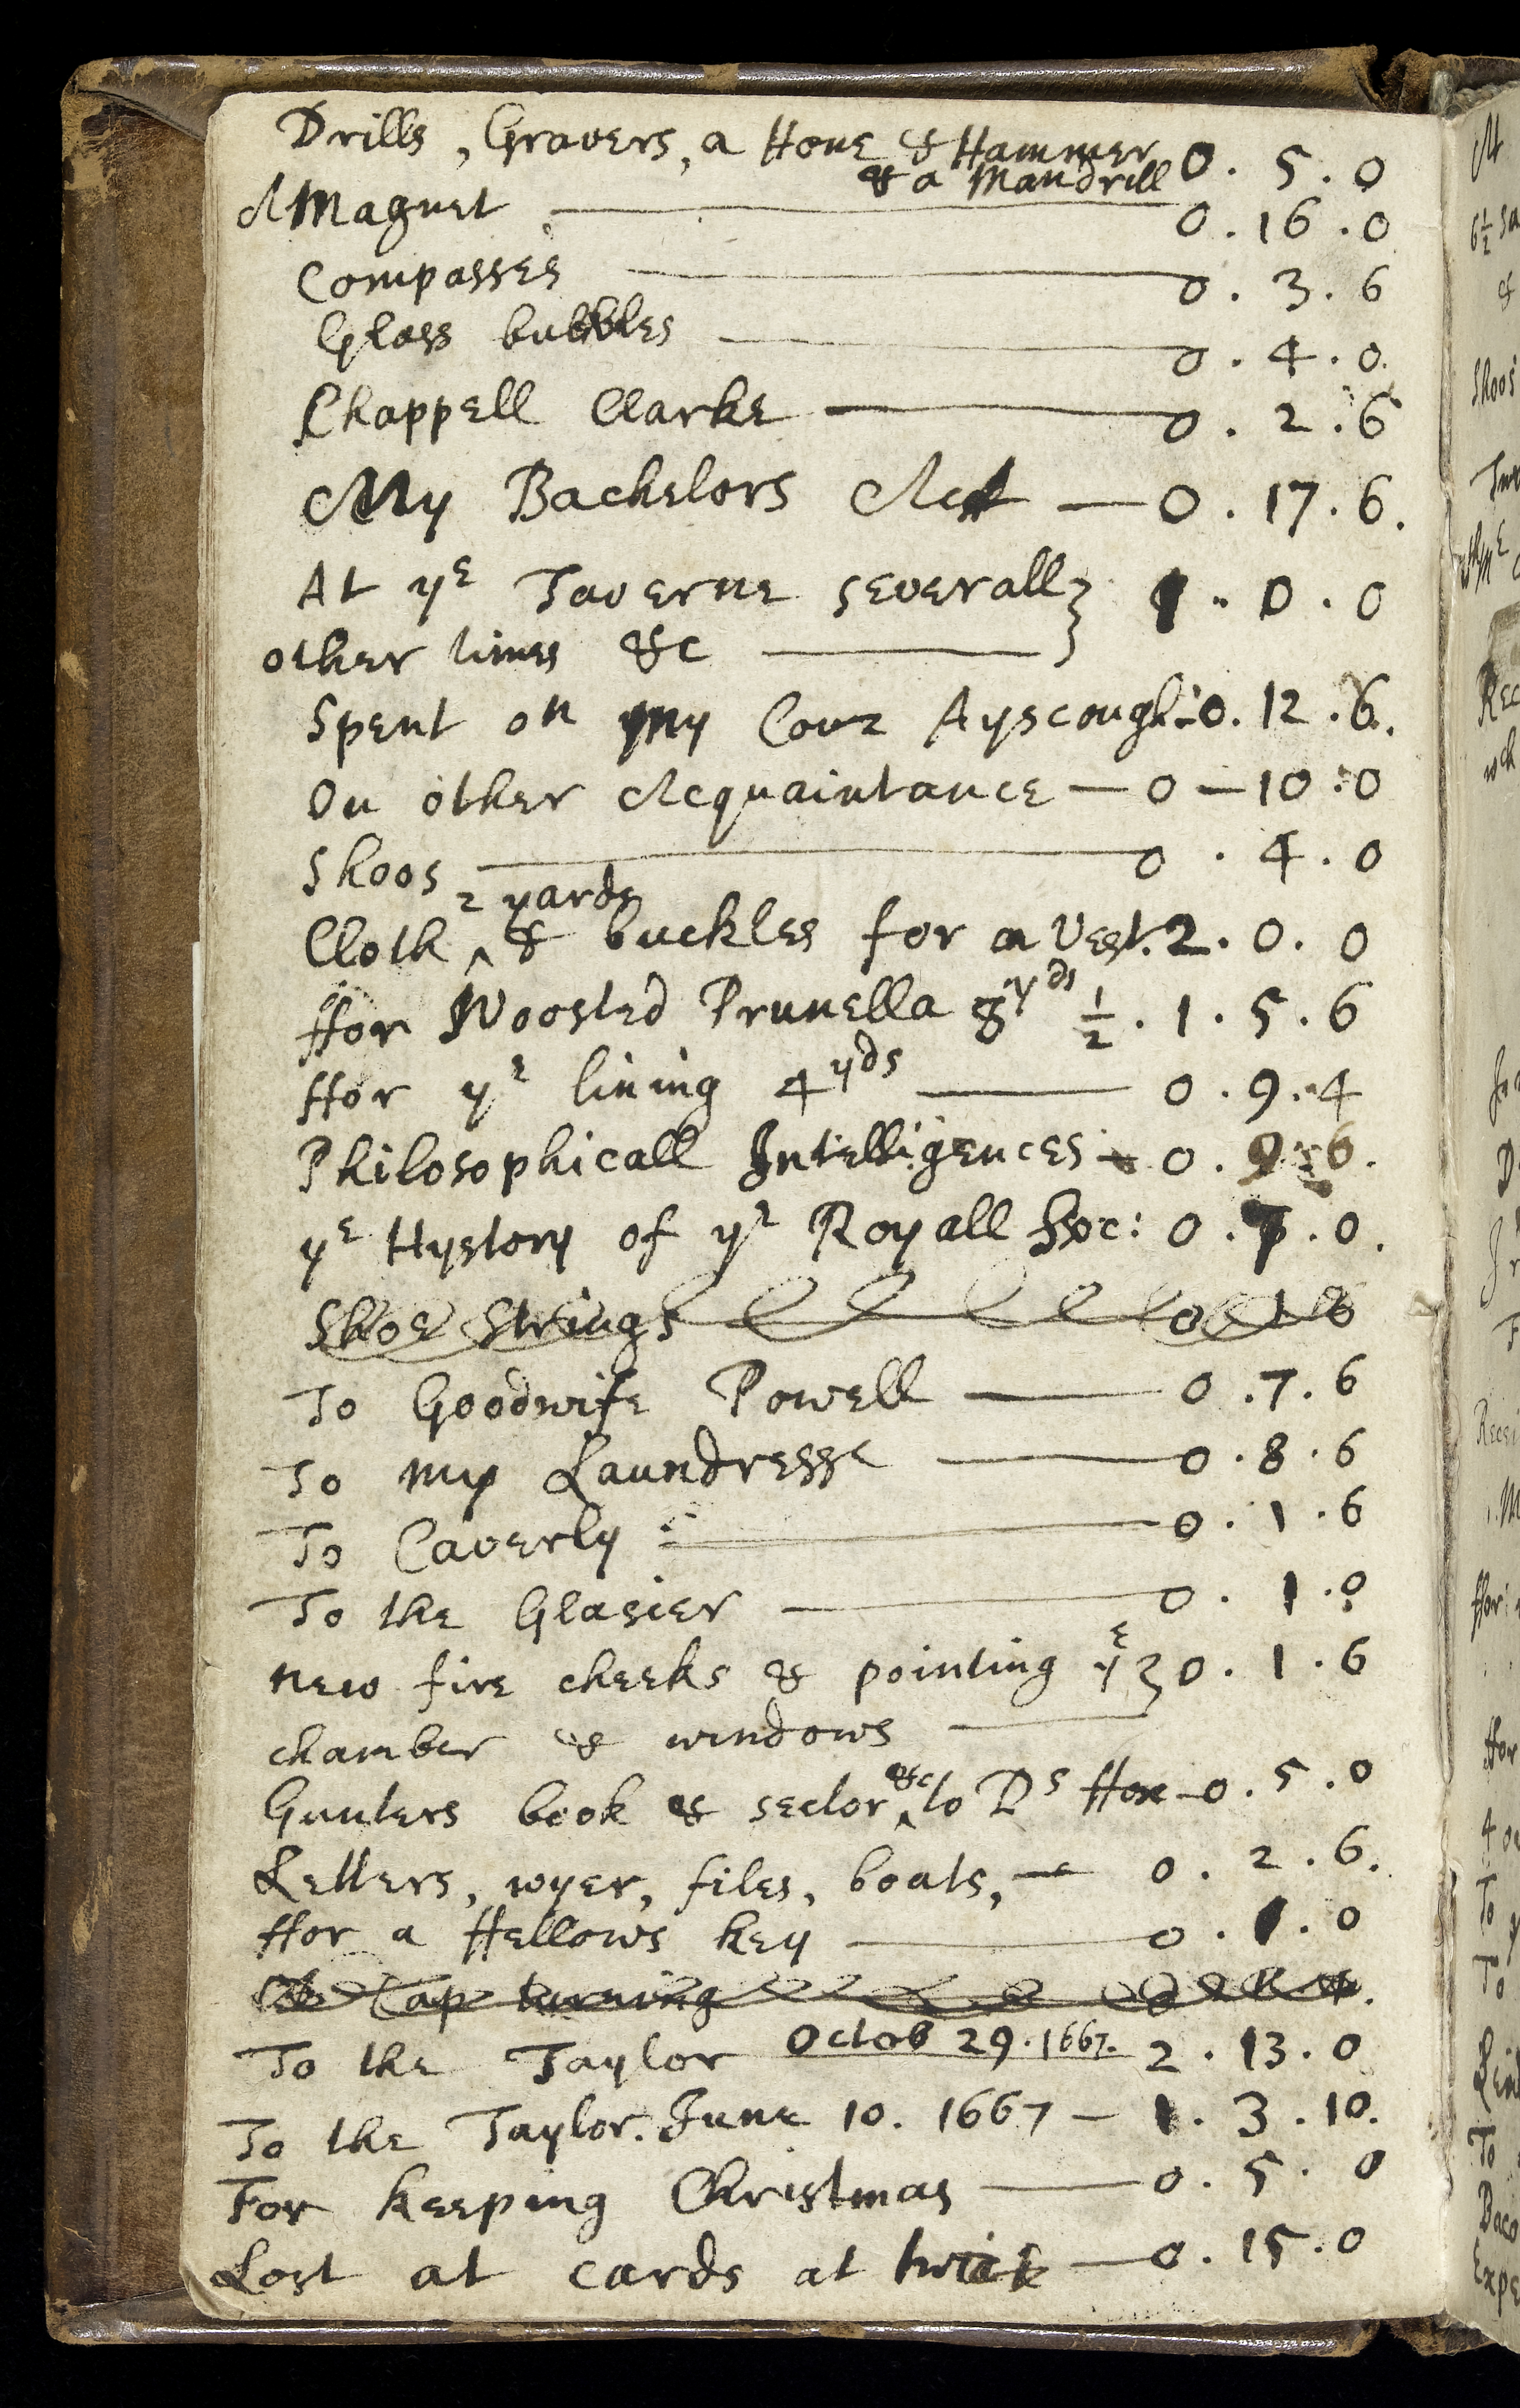 Drills, Gravers, a Hone & Hammer 0. 5. 0
& a Mandrill
A Magnet 0. 16. 0
Compasses 0. 3. 6
Glass bubbles 0. 4. 0.
Chappell Clarke 0. 2. 6
My Bachelors Act — 0. 17. 6.
At yᵉ Taverne severall } 1. 0. 0
other times &c
Spent on my Couz Ayscough: 0. 12. 6.
On other Acquaintance — 0 — 10: 0
Shoos 0. 4. 0
2 yards
Cloth ^ & buckles for a Vest. 2. 0. 0
ffor Woosted Prunella 8 yᵈˢ ½. 1. 5. 6
ffor yᵉ lining 4 yᵈˢ 0. 9. 4
Philosophicall Intelligences 0. 9. 6.
yᵉ Hystory of yᵉ Royall Soc: 0. 7. 0.
Shoe Strings 0 1 6
To Goodwife Powell 0. 7. 6
To my Laundresse 0. 8. 6
To Caverly 0. 1. 6
To the Glasier 0. 1. 0
New fire cheeks & pointing yᵉ } 0. 1. 6
chamber & windows
Gunters book & sector ^ &c to Dˢ ffox — 0. 5. 0
Letters, wyer, files, boats, — 0. 2. 6.
ffor a ffellows key 0. 1. 0
Cap turning
To the Taylor Octob 29. 1667. 2. 13. 0
To the Taylor. June 10. 1667 — 1. 3. 10.
For keeping Christmas 0. 5. 0
Lost at cards at twice — 0. 15. 0